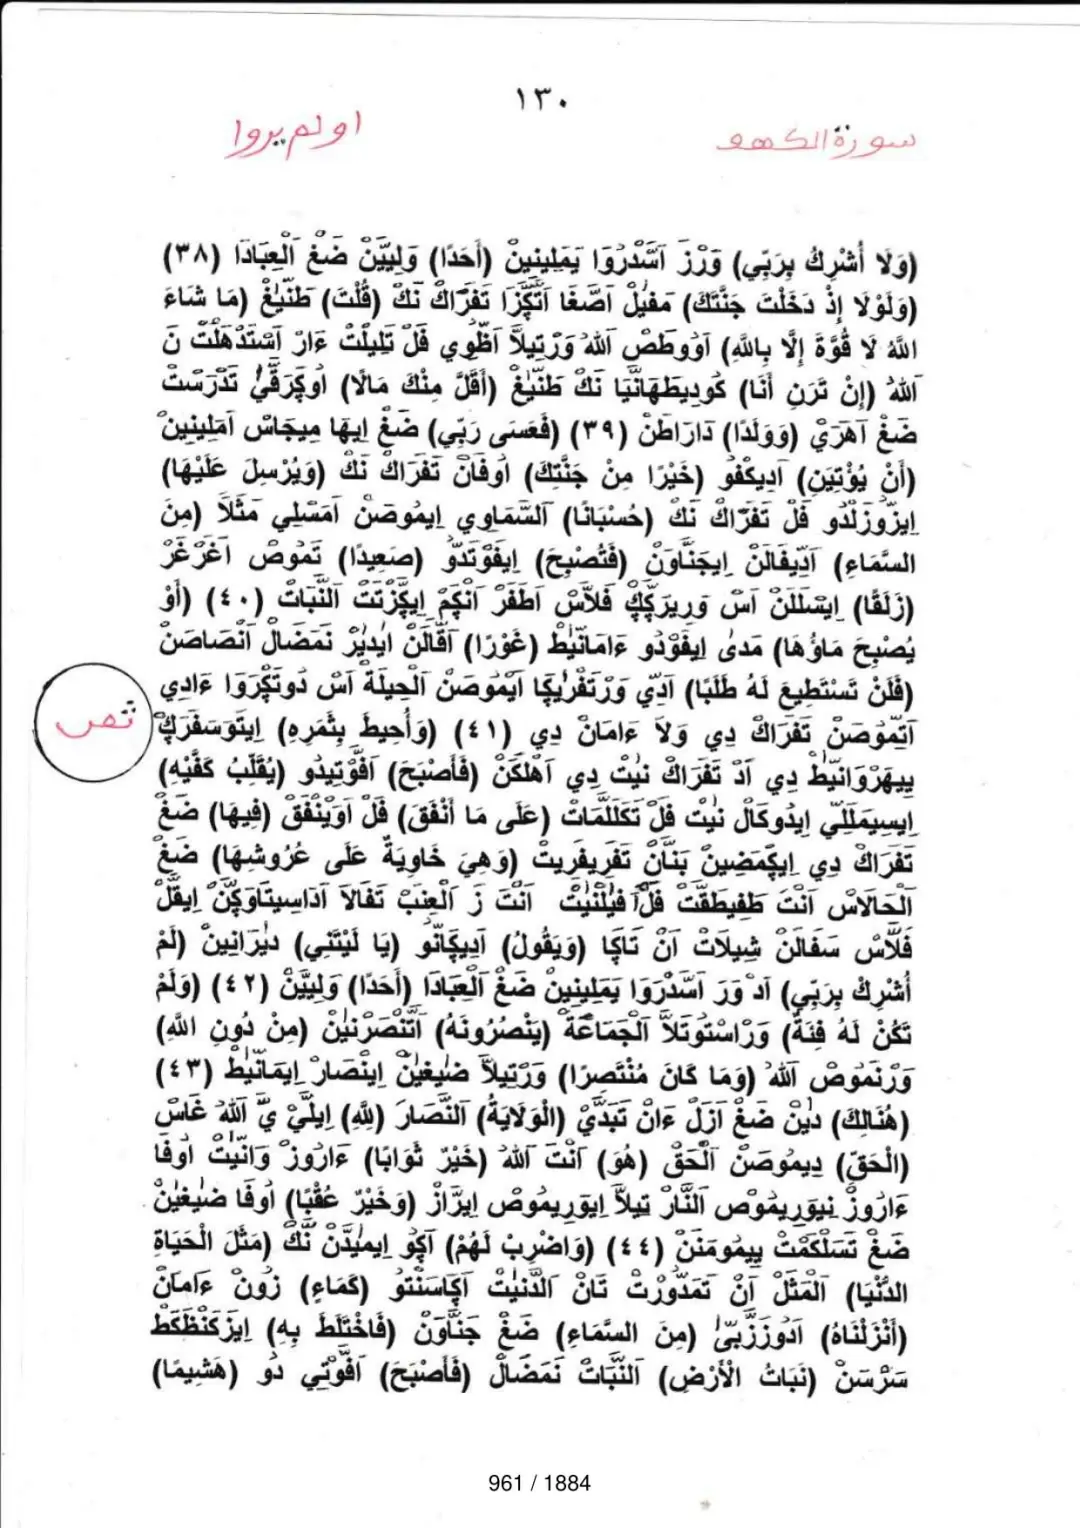 ١٣٠
سورة الكهف
اولم يروا
(وَلَا أُشْرِكُ بِرَبِّي) وَرْزَ اَسَّدْرُوا يَمَلِينِينْ (أَحَدًا) وَلِييَّنْ ضَغْ اَلْعِبَادَا (٣٨)
(وَلَوْلَا إِذْ دَخَلْتَ جَنَّتَكَ) مَفَيْلْ اَصَّغَا اَتْكِّزَا تَفَرَاكْ نَكْ (قُلْتَ) طَنَّيْغْ (مَا شَاءَ
اللَّهُ لَا قُوَّةَ إِلَّا بِاللَّهِ) اَوُوطَصْ اَللهْ وَرْتِيلَا اَظُّوِي فَلْ تَلِيلْتْ ءَارْ اَسْتَدْهَلْتْ نَ
اَللهْ (إِنْ تَرَنِ أَنَا) كُودِيطَهَانَّيَا نَكْ طَنَّيْغْ (أَقَلَّ مِنْكَ مَالًا) اُوكَرَقَّيْ تَدْرَسْتْ
ضَغْ اَهَرَيْ (وَوَلَدًا) دَارَاطَنْ (٣٩) (فَعَسَى رَبِّي) ضَغْ اِيهَا مِيجَاسْ اَمَلِينِينْ
(أَنْ يُؤْتِيَنِ) اَدِيكْفُو (خَيْرًا مِنْ جَنَّتِكَ) اُوفَانْ تَفَرَاكْ نَكْ (وَيُرْسِلَ عَلَيْهَا)
اِيزُّوزَلْدُو فَلْ تَفَرَاكْ نَكْ (حُسْبَانًا) اَلسَّمَاوِي اِيمُوصَنْ اَمَسْلِي مَثَلَا (مِنَ
السَّمَاءِ) اَدِّيفَالَنْ اِيجَنَّاوَنْ (فَتُصْبِحَ) اِيفَوْتَدُّو (صَعِيدًا) تَمُوصْ اَغَرْغَرْ
(زَلَقًا) اِيسَلَلَنْ اَسْ وَرِيرَكِّكْ فَلَّاسْ اَطَفَرْ اَنْكُمْ اِيكَّزْتَتْ اَلنَّبَاتْ (٤٠) (أَوْ
يُصْبِحَ مَاؤُهَا) مَدىٰ اِيفَوْدُو ءَامَانَّيْطْ (غَوْرًا) اَقَّالَنْ اَيدَيْرْ نَمَضَالْ اَنْصَاصَنْ
(فَلَنْ تَسْتَطِيعَ لَهُ طَلَبًا) اَدِّي وَرْتَفْرِيكَا اَيْمُوصَنْ اَلْحِيلَةْ اَسْ دُوتَكْرَوا ءَادِي
اَتَّمُوصَنْ تَفَرَاكْ دِي وَلَا ءَامَانْ دِي (٤١) (وَأُحِيطَ بِثَمَرِهِ) اِيتَوَسَفَرَكْ
ثمن
يِيهَرْوَانَيْطْ دِي اَدْ تَفَرَاكْ نَيْتْ دِي اَهْلَكَنْ (فَأَصْبَحَ) اَفَّوْتِيدُو (يُقَلِّبُ كَفَّيْهِ)
اِيسِيمَلَلِّي اِيدُوكَالْ نَيْتْ فَلْ تَكَلَلَّمَاتْ (عَلَى مَا أَنْفَقَ) فَلْ اَوَيْنْفَقْ (فِيهَا) ضَغْ
تَفَرَاكْ دِي اِيكَمَضِينْ بَنَانْ تَفْرِيفَرِيتْ (وَهِيَ خَاوِيَةٌ عَلَى عُرُوشِهَا) ضَغْ
اَلْحَالَاسْ اَنْتَ طَفِيطَقَّتْ فَلْ اَفَيْلَنَّيْتْ اَنْتَ زَ اَلْعِنَبْ تَفَالَا اَدَاسِيتَاوَكِّنْ اِيقَلْ
فَلَّاسْ سَفَالَنْ شِيلَاتْ اَنْ تَاكَا (وَيَقُولُ) اَدِيكَانُّو (يَا لَيْتَنِي) دَيْرَانِينْ (لَمْ
أُشْرِكْ بِرَبِّي) اَدْ وَرَ اَسَّدْرَوَا يَمَلِينِينْ ضَغْ اَلْعِبَادَا (أَحَدًا) وَلِييَّنْ (٤٢) (وَلَمْ
تَكُنْ لَهُ فِئَةٌ) وَرْاسْتَوَتَلَّا اَلْجَمَاعَةْ (يَنْصُرُونَهُ) اَتَّنْصَرْنَيْنْ (مِنْ دُونِ اللَّهِ)
وَرْنَمُوصْ اَللهْ (وَمَا كَانَ مُنْتَصِرًا) وَرْتِيلَا ضَيْغَيْنْ اِينْصَارْ اِيمَانَيْطْ (٤٣)
(هُنَالِكَ) دَيْنْ ضَغْ اَزَلْ ءَانْ تَبَدَّيْ (الْوَلَايَةُ) اَلنَّصَارَ (لِلَّهِ) اِيلَيْ يَ اَللهْ غَاسْ
(الْحَقِّ) دِيمُوصَنْ اَلْحَقْ (هُوَ) اَنْتَ اَللهْ (خَيْرٌ ثَوَابًا) ءَارُوزْ وَانَيْتْ اُوفَا
ءَارُوزْ نِيوَرِيمُوصْ اَلنَّارْ تِيلَا اِيوَرِيمُوصْ اِيرَازْ (وَخَيْرٌ عُقْبًا) اُوفَا ضَيْغَيْنْ
ضَغْ تَسَلْكَمْتْ يِيمُومَنَنْ (٤٤) (وَاضْرِبْ لَهُمْ) اَكُو اِيمَيْدَّنْ نَّكْ (مَثَلَ الْحَيَاةِ
الدُّنْيَا) اَلْمَثَلْ اَنْ تَمَدُّورْتْ تَانْ اَلدُّنَيْتْ اَكَاسَنْتُو (كَمَاءٍ) زُونْ ءَامَانْ
(أَنْزَلْنَاهُ) اَدُوزَزُّبَىٰ (مِنَ السَّمَاءِ) ضَغْ جَنَّاوَنْ (فَاخْتَلَطَ بِهِ) اِيزَكَنْظَكَطْ
سَرْسَنْ (نَبَاتُ الْأَرْضِ) اَلنَّبَاتْ نَمَضَالْ (فَأَصْبَحَ) اَفَّوْتِي دُو (هَشِيمًا)
961 / 1884